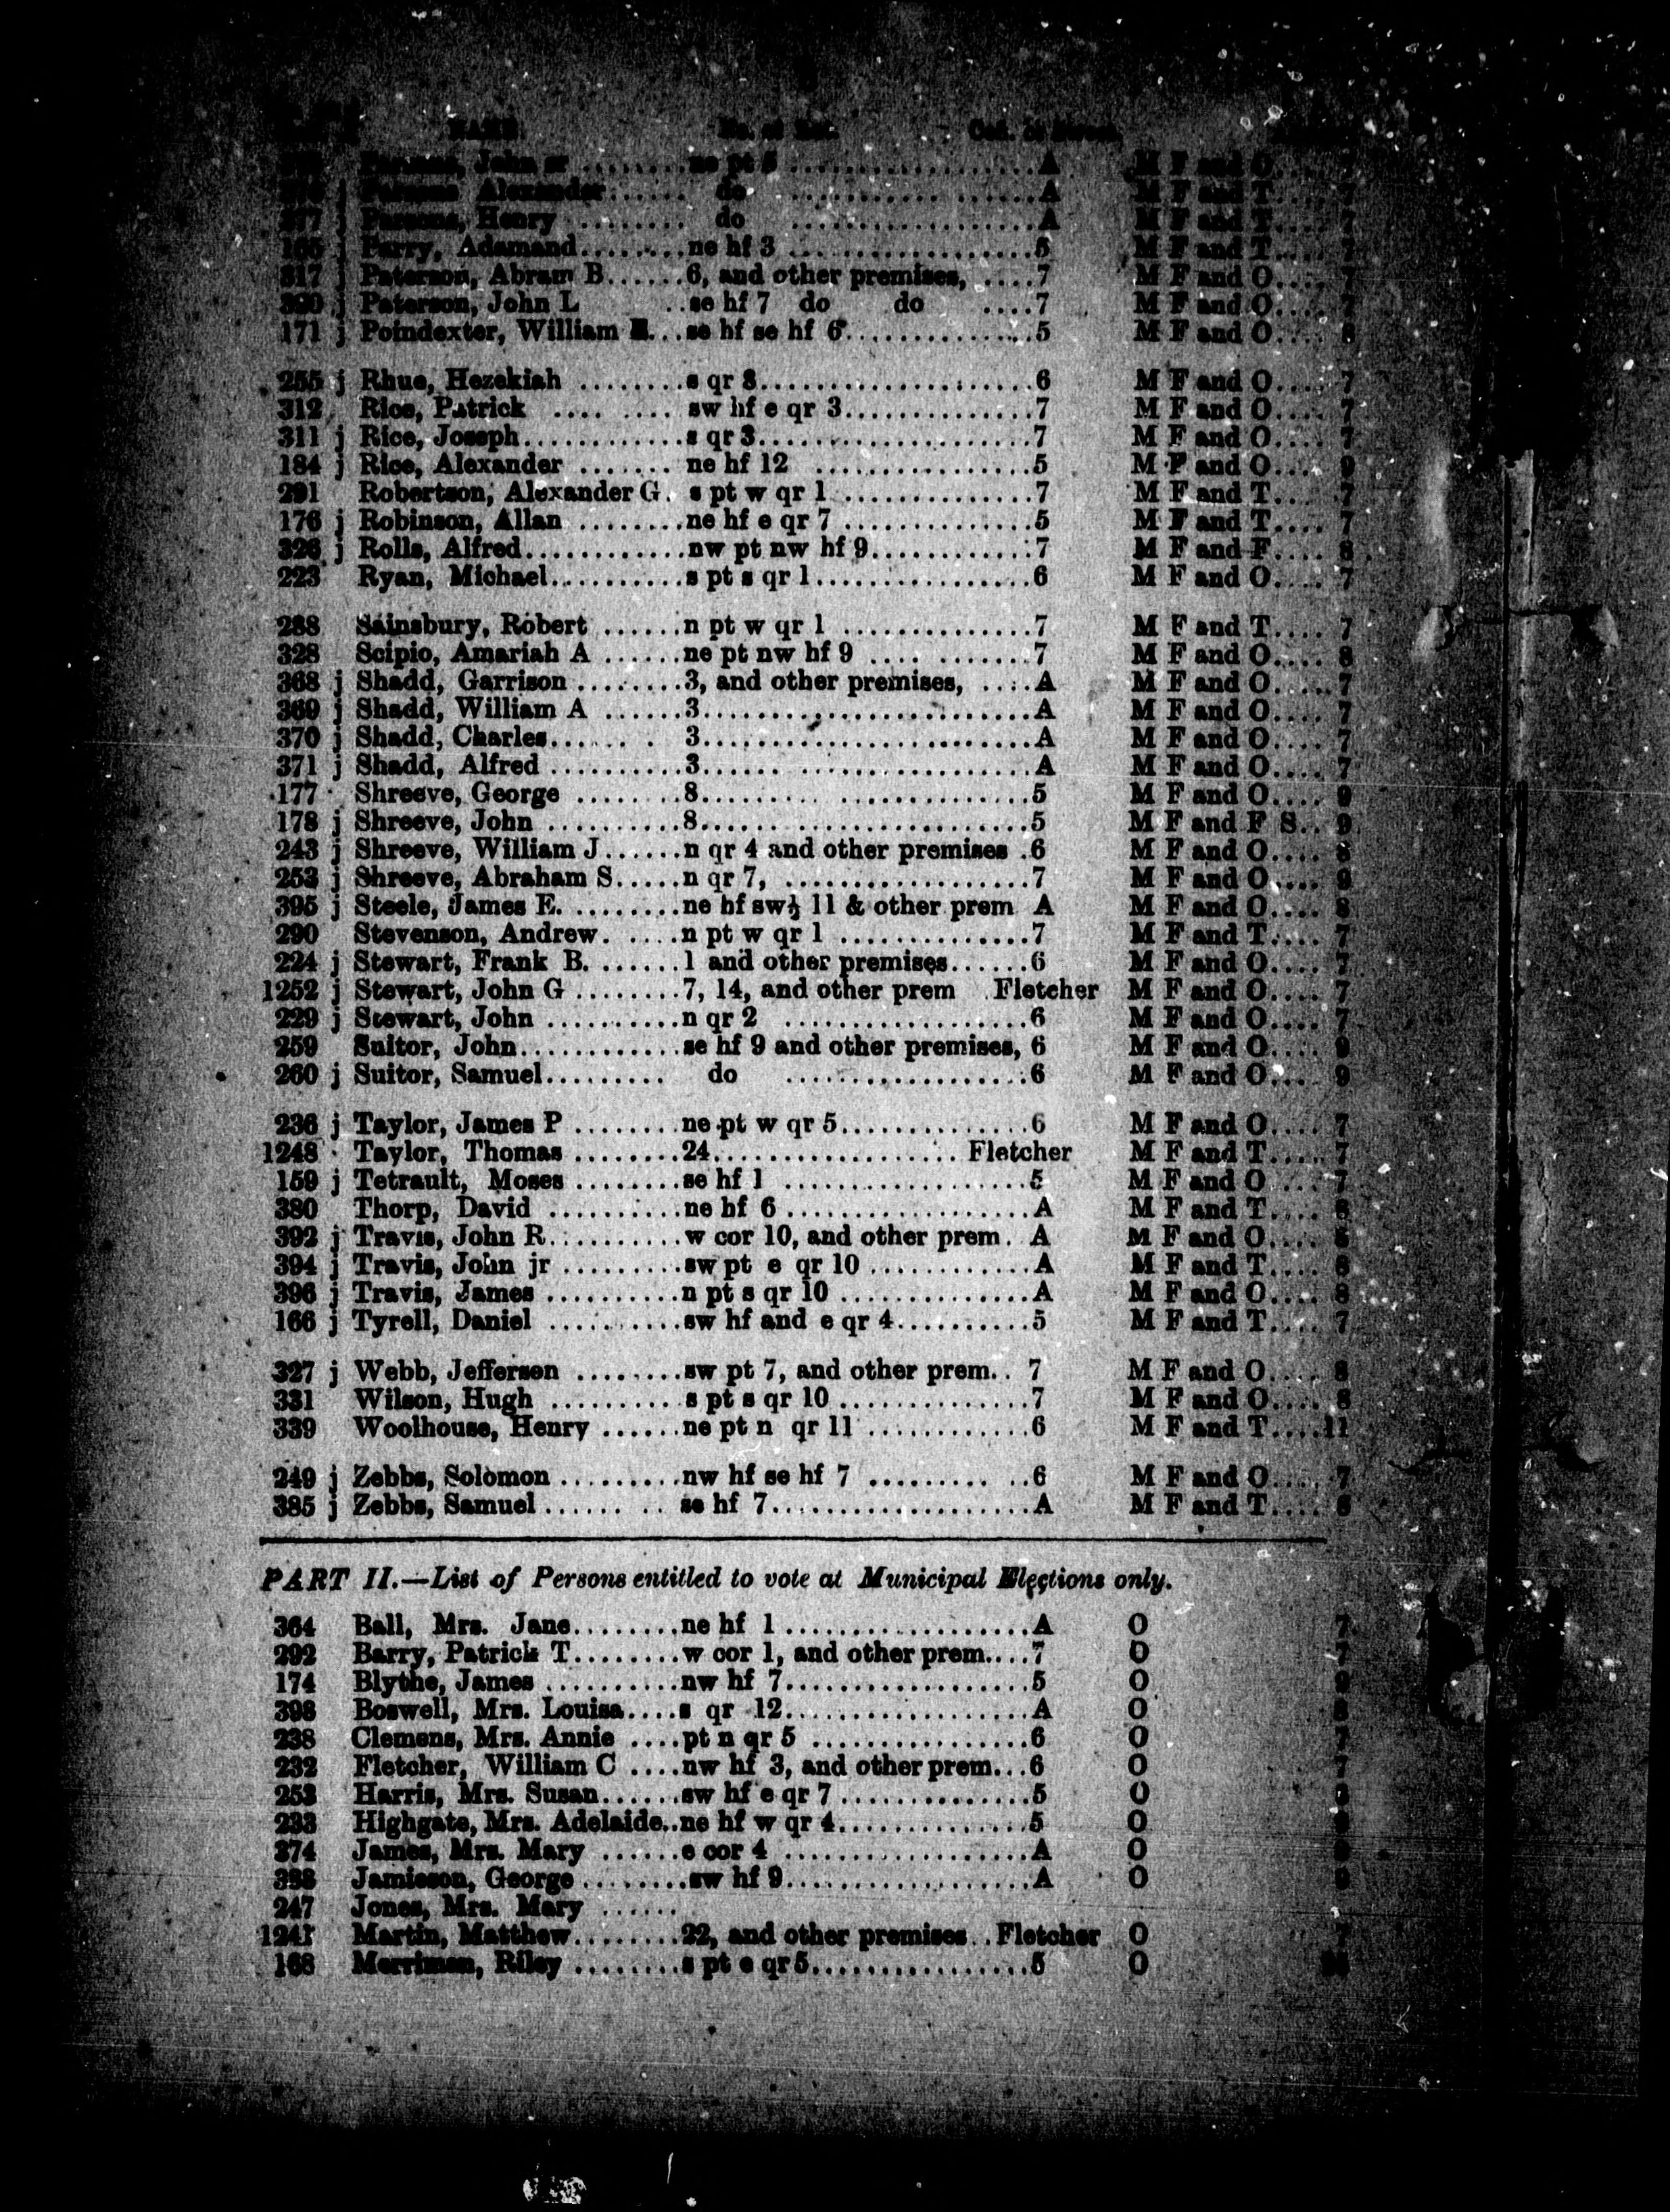 NAME. No. of Lot. Con. or Street.
John sr ........ ne pt 5 .................. A M F and O....
Alexander...... do .................. A M F and T.... 7
377 j Parsons, Henry ........ do .................. A M F and T.... 7
165 j Parry, Adamand........ne hf 3 .................. 5 M F and T.... 7
317 j Paterson, Abram B......6, and other premises, ....7 M F and O.... 7
320 j Paterson, John L ..se hf 7 do do ....7 M F and O....
171 j Poindexter, William ...se hf se hf 6..............5 M F and O.... 8
255 j Rhue, Hezekiah ........s qr 8....................6 M F and O.... 7
312 Rice, Patrick .... .... sw hf e qr 3..............7 M F and O.... 7
311 j Rice, Joseph............s qr 3....................7 M F and O.... 7
184 j Rice, Alexander ....... ne hf 12 ................5 M F and O.... 9
291 Robertson, Alexander G. s pt w qr 1 ..............7 M F and T.... 7
176 j Robinson, Allan ........ne hf e qr 7 ..............5 M F and T.... 7
326 j Rolls, Alfred............nw pt nw hf 9............7 M F and F.... 8
223 Ryan, Michael..........s pt s qr 1................6 M F and O.... 7
288 Sainsbury, Robert ......n pt w qr 1 ..............7 M F and T.... 7
328 Scipio, Amariah A ......ne pt nw hf 9 .... .......7 M F and O.... 8
368 j Shadd, Garrison ........3, and other premises, ....A M F and O.... 7
369 j Shadd, William A ......3........................A M F and O.... 7
370 j Shadd, Charles...... . 3........................A M F and O.... 7
371 j Shadd, Alfred ..........3...... ..................A M F and O.... 7
177 Shreeve, George ........8.......... ..............5 M F and O.... 9
178 j Shreeve, John ..........8........................5 M F and F S.. 9
243 j Shreeve, William J......n qr 4 and other premises .6 M F and O.... 8
253 j Shreeve, Abraham S.....n qr 7, ..................7 M F and O.... 9
395 j Steele, James E. ........ne hf sw½ 11 & other prem A M F and O.... 8
290 Stevenson, Andrew. .....n pt w qr 1 ..............7 M F and T.... 7
224 j Stewart, Frank B. .......1 and other premises......6 M F and O.... 7
1252 j Stewart, John G ........7, 14, and other prem .Fletcher M F and O.... 7
229 j Stewart, John ..........n qr 2 ..................6 M F and O.... 7
259 Suitor, John............se hf 9 and other premises, 6 M F and O.... 9
260 j Suitor, Samuel......... do ..................6 M F and O.... 9
236 j Taylor, James P ........ne pt w qr 5..............6 M F and O.... 7
1248 Taylor, Thomas ........24.................. Fletcher M F and T.... 7
159 j Tetrault, Moses ........se hf 1 ..................5 M F and O .... 7
380 Thorp, David ..........ne hf 6 ..................A M F and T.... 8
392 j Travis, John R..........w cor 10, and other prem. A M F and O.... 8
394 j Travis, John jr .........sw pt e qr 10 ............A M F and T.... 8
396 j Travis, James ..........n pt s qr 10 ..............A M F and O.... 8
166 j Tyrell, Daniel ..........sw hf and e qr 4..........5 M F and T.... 7
327 j Webb, Jefferson ........sw pt 7, and other prem.. 7 M F and O.... 8
331 Wilson, Hugh .......... s pt s qr 10 ..............7 M F and O.... 8
339 Woolhouse, Henry ......ne pt n qr 11 ............6 M F and T....11
249 j Zebbs, Solomon .........nw hf se hf 7 ......... ..6 M F and O.... 7
385 j Zebbs, Samuel ...... .. se hf 7..................A M F and T.... 8
PART II.—List of Persons entitled to vote at Municipal Elections only.
364 Ball, Mrs. Jane........ne hf 1 ..................A O 7
292 Barry, Patrick T........w cor 1, and other prem....7 O 7
174 Blythe, James ..........nw hf 7..................5 O 9
398 Boswell, Mrs. Louisa....s qr 12..................A O 8
238 Clemens, Mrs. Annie ....pt n qr 5 ................6 O 7
232 Fletcher, William C ....nw hf 3, and other prem...6 O 7
253 Harris, Mrs. Susan......sw hf e qr 7 ..............5 O
233 Highgate, Mrs. Adelaide..ne hf w qr 4..............5 O
374 James, Mrs. Mary ......e cor 4 ..................A O
388 Jamieson, George ........sw hf 9..................A O 9
247 Jones, Mrs. Mary ......
1241 Martin, Matthew........22, and other premises..Fletcher O 7
168 Merriman, Riley ........s pt e qr 5................5 O